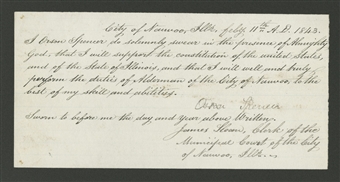 City of Nauvoo, Ills. July 11th A.D. 1843.
I Orson Spencer do solemnly swear in the presence of Almighty
God, that I will support the constitution of the United States,
and of the State of Illinois, and that I will well and truly
perform the duties of Alderman of the City of Nauvoo, to the
best of my skill and abilities.
Orson Spencer
Sworn to before me the day and year above Written.
James Sloan, Clerk of the
Municipal Court of the City
of Nauvoo, Ills.